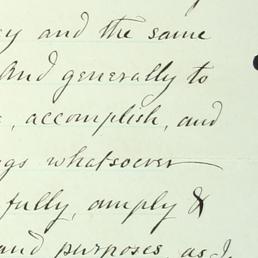 and the same
And generally to
, accomplish, and
gs whatsoever
fully, amply &
and purposes, as I